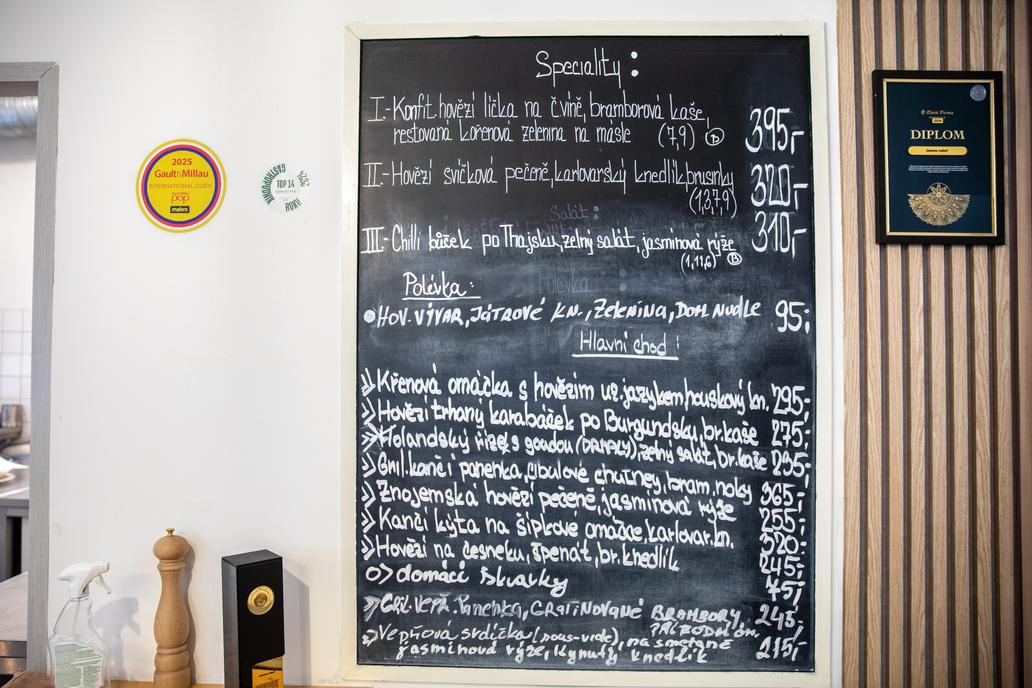 Speciality :
I.-Konfit.hovězí líčka na č.víně, bramborová kaše,
restovaná kořenová zelenina na másle (7,9) B 395,-
II.-Hovězí svíčková pečeně, karlovarský knedlík, brusinky 320,-
(1,3,7,9)
III.-Chilli bůček po Thajsku, zelný salát, jasmínová rýže 310,-
(1,11,6) B
Polévka:
HOV. VÝVAR, JÁTROVÉ KN., ZELENINA, DOM. NUDLE 95,-
Hlavní chod :
Křenová omáčka s hovězím uz. jazykem houskový kn. 295,-
Hovězí trhaný karabáček po Burgundsku, br. kaše 275,-
Holandský řízek s goudou, zelný salát, br. kaše 295,-
Gril. kančí panenka, cibulové chutney, bram. noky 365,-
Znojemská hovězí pečeně, jasmínová rýže 255,-
Kančí kýta na šípkové omáčce, karlovar. kn. 320,-
Hovězí na česneku, špenát, br. knedlík 245,-
domácí škvarky 75,-
Gril. vepř. Panenka, GRATINOVANÉ BRAMBORY, 245,-
Vepřová srdíčka (sous-vide), na smetaně 215,-
jasmínová rýže, kynutý knedlík
2025
Gault&Millau
INTERNATIONAL GUIDE
pop
makro
TOP 14
ROKU
Zlatá Firma
DIPLOM